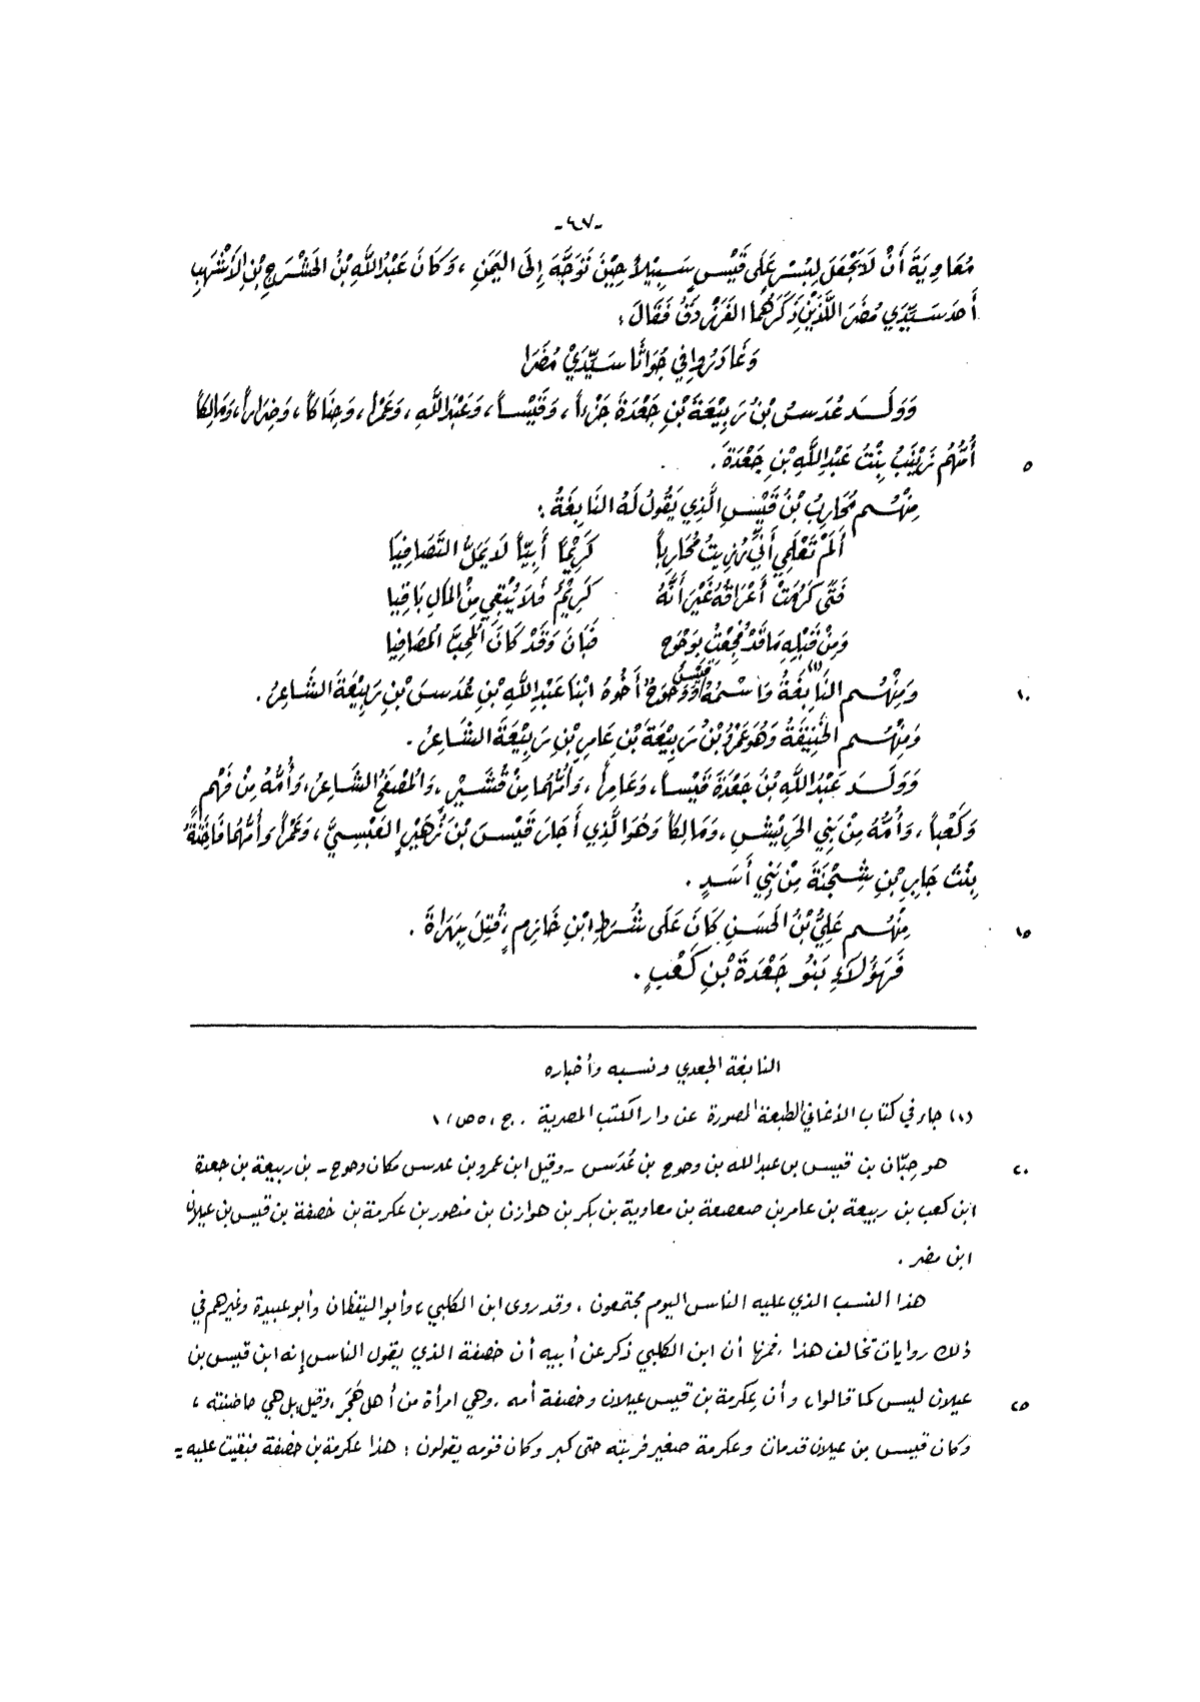 -٤٧-
مُعَاوِيَةَ أَنْ لَا يَجْعَلَ لِبُسْرٍ عَلَى قَيْسٍ سَبِيْلاً حِيْنَ تَوَجَّهَ إِلَى اليَمَنِ ، وَكَانَ عَبْدُ اللَّهِ بْنُ الحَشْرَجِ بْنِ الأَشْهَبِ
أَحَدَ سَيِّدَيْ مُضَرَ اللَّذَيْنِ ذَكَرَهُمَا الفَرَزْدَقُ فَقَالَ :
وَغَادَرُوا فِي جُوَاثَا سَيِّدَيْ مُضَرَا
وَوَلَـدَ عُدَسُ بْنُ رَبِيْعَةَ بْنِ جَعْدَةَ جَزْءاً ، وَقَيْساً ، وَعَبْدَ اللَّهِ ، وَعَمْراً ، وَحِنَاكاً ، وَضِرَاراً ، وَمَالِكاً
٥ أُمُّهُم زَيْنَبُ بِنْتُ عَبْدِ اللَّهِ بْنِ جَعْدَةَ .
مِنْهُـم مُحَارِبُ بْنُ قَيْسٍ الَّذِي يَقُولُ لَهُ النَّابِغَةُ :
أَلَمْ تَعْلَمِي أَنِّي رُزِيتُ مُحَارِباً كَرِيْماً أَبِيّاً لَا يَمَلُّ التَّصَافِيَا
فَتًى كَرُمَتْ أَعْرَاقُهُ غَيْرَ أَنَّهُ كَرِيْمٌ فَلَا يُبْقِي مِنْ المَالِ بَاقِيا
وَمِنْ قَبْلِهِ مَا قَدْ فُجِعْتُ بِوَحْوَحٍ فَبَانَ وَقَدْ كَانَ المُحِبَّ المُصَافِيا
١٠ وَمِنْهُـم النَّابِغَةُ (١) وَاسْمُهُ قَيْسٌ وَوَحْوَحٌ أَخُوهُ ابْنَا عَبْدِ اللَّهِ بْنِ عُدَسَ بْنِ رَبِيْعَةَ الشَّاعِرُ .
وَمِنْهُـم وَهُوَ عَمْرُو بْنُ رَبِيْعَةَ بْنِ عَامِرِ بْنِ رَبِيْعَةَ الشَّاعِرُ .
وَوَلَـدَ عَبْدُ اللَّهِ بْنُ جَعْدَةَ قَيْساً ، وَعَامِراً ، وَأُمُّهُمَا مِنْ قُشَيْرٍ ، وَالمُصَفَّحَ الشَّاعِرَ ، وَأُمُّهُ مِنْ فَهْمٍ
وَكَعْباً ، وَأُمُّهُ مِنْ بَنِي الحَرِيْشِ ، وَمَالِكاً وَهُوَ الَّذِي أَجَارَ قَيْسَ بْنَ زُهَيْرٍ العَبْسِيَّ ، وَعَمْراً وَأُمُّهُمَا فَاخِتَةُ
بِنْتُ جَابِرِ بْنِ شِجْنَةَ مِنْ بَنِي أَسَدٍ .
١٥ مِنْهُـم عَلِيُّ بْنُ الحَسَنِ كَانَ عَلَى شُرَطِ ابْنِ خَازِمٍ ، قُتِلَ بِهَرَاةَ .
فَهَؤُلَاءِ بَنُو جَعْدَةَ بْنِ كَعْبٍ .
النابغة الجعدي ونسبه وأخباره
(١) جاء في كتاب الأغاني الطبعة المصورة عن دار الكتب المصرية . ج ، ٥ ص ، ١
٢٠ هو حِبّان بن قيس بن عبد الله بن وحوح بن عُدَس - وقيل ابن عمرو بن عدس مكان وحوح - بن ربيعة بن جعدة
ابن كعب بن ربيعة بن عامر بن صعصعة بن معاوية بن بكر بن هوازن بن منصور بن عكرمة بن خصفة بن قيس بن عيلان
ابن مضر .
هذا النسب الذي عليه الناس اليوم مجتمعون ، وقد روى ابن الكلبي ، وأبو اليقظان وأبو عبيدة وغيرهم في
ذلك روايات تخالف هذا ، فمنها أن ابن الكلبي ذكر عن أبيه أن خصفة الذي يقول الناس إنه ابن قيس بن
٢٥ عيلان ليس كما قالوا ، وأن عكرمة بن قيس عيلان وخصفة أمه ، وهي امرأة من أهل هَجَر ، وقيل بل هي حاضنته ،
وكان قيس بن عيلان قد مات وعكرمة صغير فربته حتى كبر وكان قومه يقولون : هذا عكرمة بن خصفة فبقيت عليه =